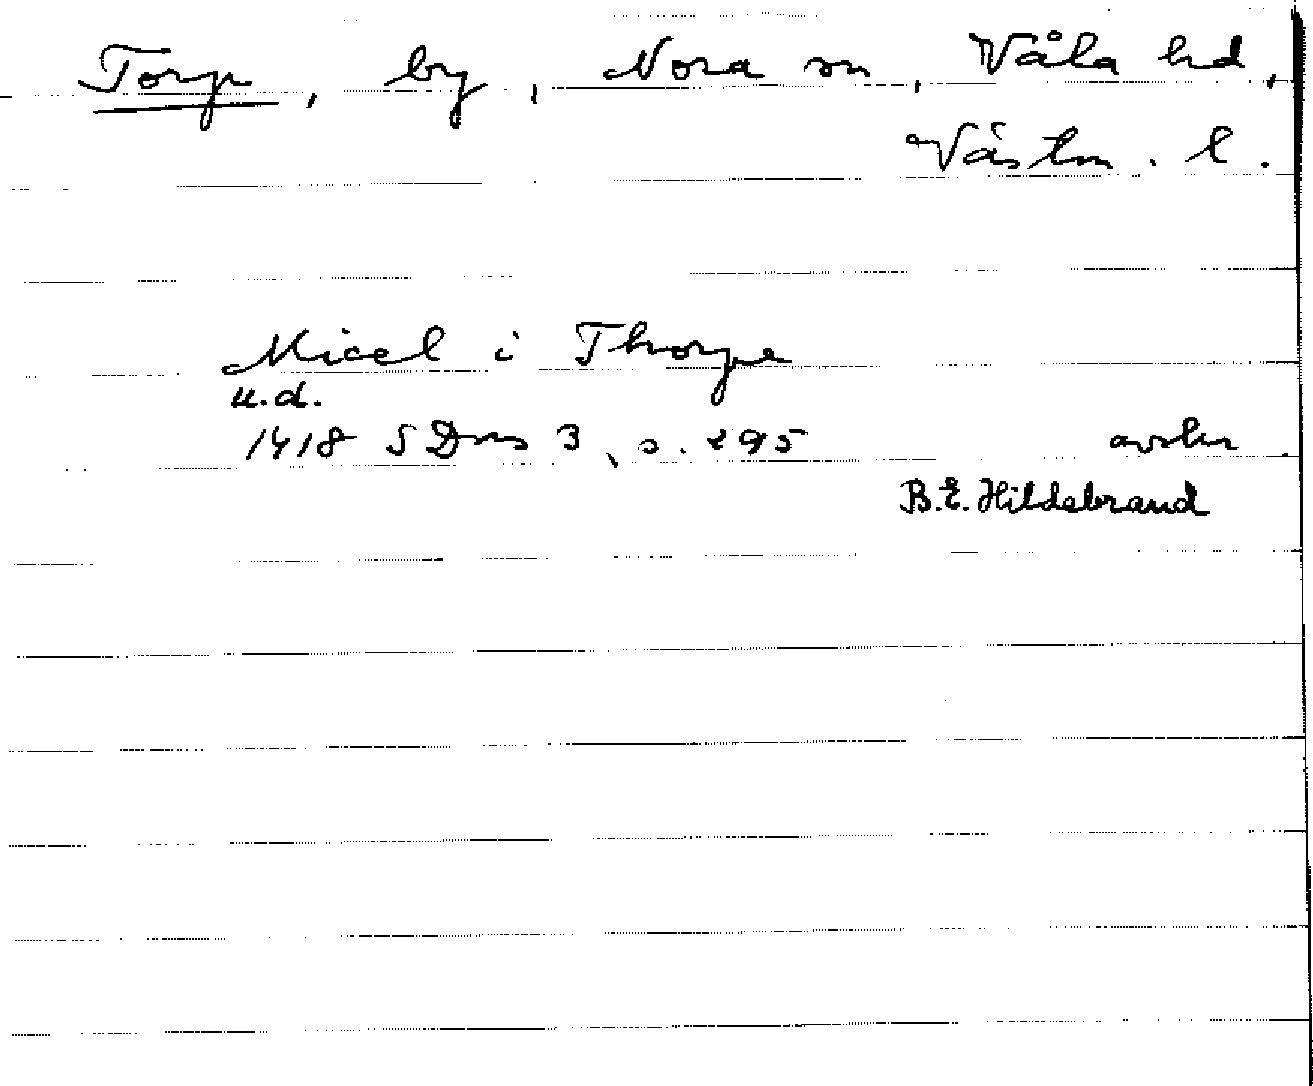 Torp, by, Nora sn, Våla hd,
Västm. l.
Micel i Thorpe
u.d.
1418 SDns 3, s. 295 avskr
B.E. Hildebrand